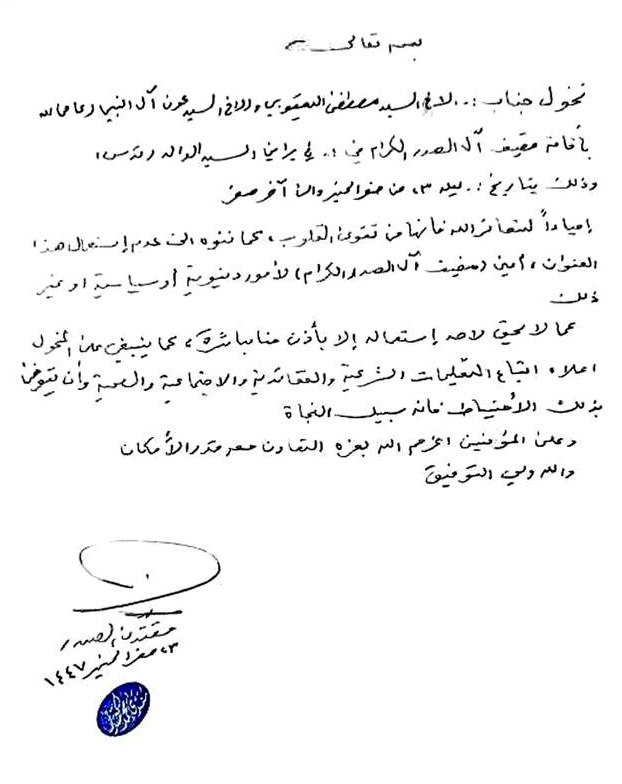 بسمه تعالى
نخول جناب :.. الاخ السيد مصطفى اليعقوبي والاخ السيد عون آل النبي رعاهما الله
بأقامة مضيف آل الصدر الكرام في :.. في براني السيد الوالد (قدس)
وذلك بتاريخ :.. ليلة ٣، من صفر الخير والى آخر صفر
إحياءاً لشعائر الله فأنها من تقوى القلوب، كما ننوه الى عدم إستعمال هذا
العنوان، أعني (مضيف آل الصدر الكرام) لأمور دنيوية أو سياسية او غير
ذلك
كما لا يحق لاحد إستعماله إلا بأذن منا مباشرة، كما ينبغي على المخول
اعلاه اتباع التعليمات الشرعية والعقائدية والاجتماعية والصحية وأن يتوخى
بذلك الأحتياط فانه سبيل النجاة
وعلى المؤمنين اعزهم الله بعزه التعاون معه قدر الأمكان
والله ولي التوفيق
مقتدى الصدر
٢٣ صفر الخير ١٤٤٧